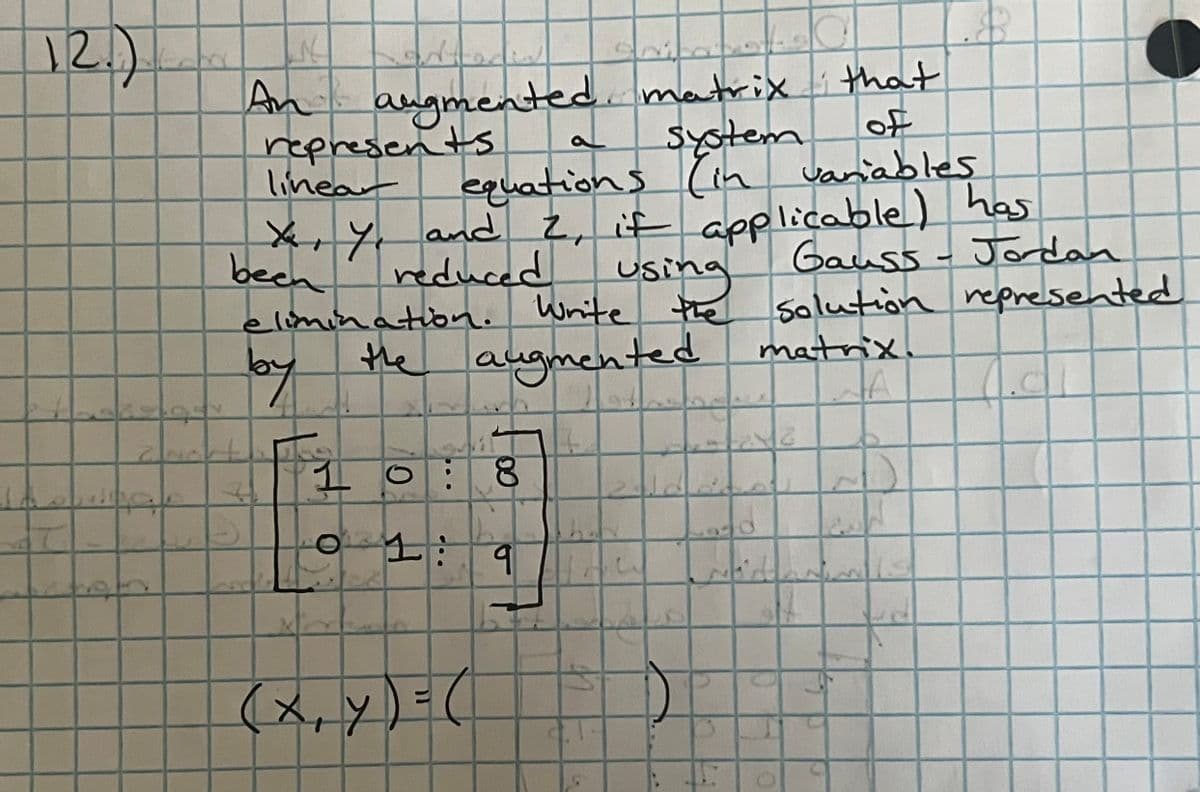 12.)
An augmented matrix that
represents a system of
linear equations (in variables
x, y, and z, if applicable) has
been reduced using Gauss-Jordan
elimination. Write the solution represented
by the augmented matrix.
1 0 ⋮ 8
0 1 ⋮ 9
(x, y) = ( )